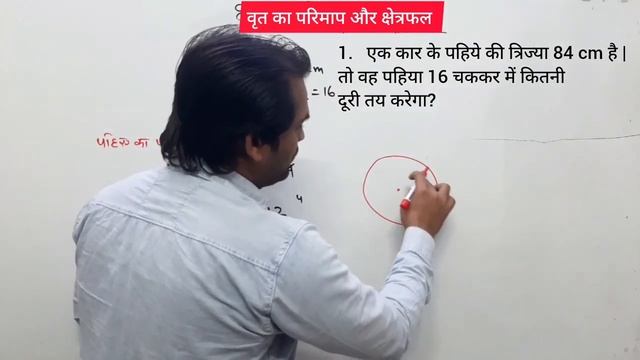 वृत का परिमाप और क्षेत्रफल
1. एक कार के पहिये की त्रिज्या 84 cm है |
तो वह पहिया 16 चककर में कितनी
दूरी तय करेगा?
m
= 16
पहिए का
4